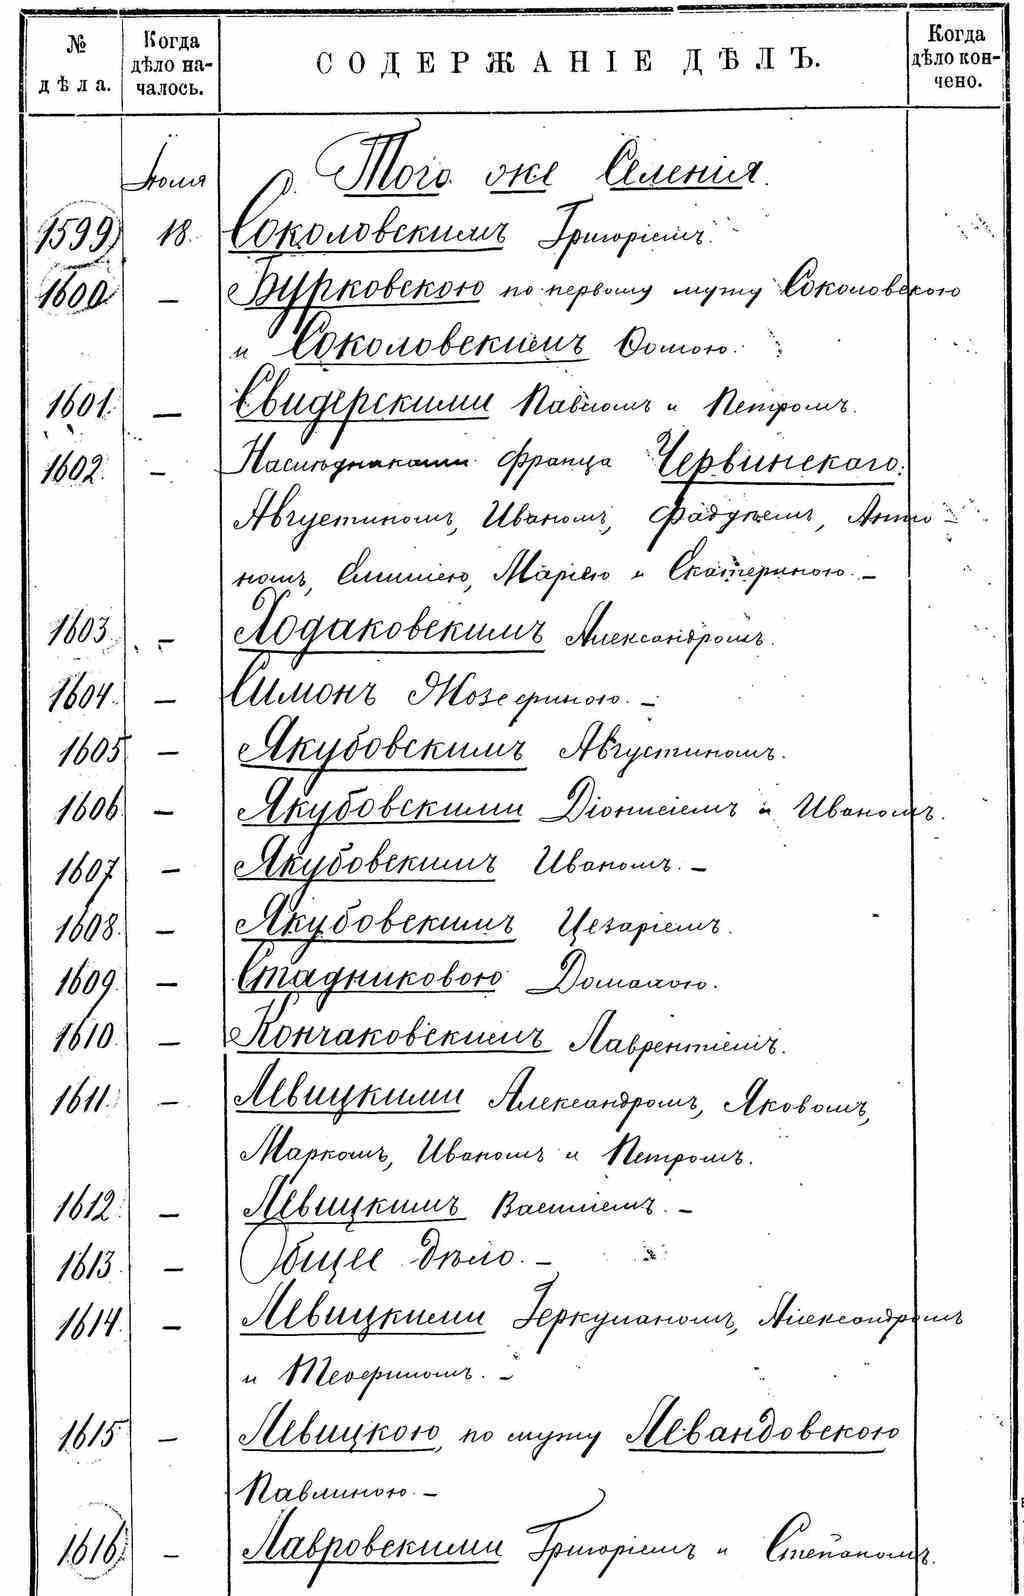 № дѣла. Когда дѣло началось. СОДЕРЖАНІЕ ДѢЛЪ. Когда дѣло кончено.
Іюля Того же Селенія.
1599 18. Соколовскимъ Григоріемъ.
1600 — Бурковскою по первому мужу Соколовскою
и Соколовскимъ Ѳомою.
1601. — Свидерскими Павломъ и Петромъ.
1602. — Наслѣдниками Франца Червинскаго:
Августиномъ, Иваномъ, Фадѣемъ, Анто-
номъ, Емиліею, Маріею и Екатериною. —
1603 — Ходаковскимъ Александромъ.
1604. — Симонъ Жозефиною. —
1605 — Якубовскимъ Августиномъ.
1606. — Якубовскими Діонисіемъ и Иваномъ.
1607 — Якубовскимъ Иваномъ. —
1608. — Якубовскимъ Цезаріемъ.
1609. — Стадниковою Домахою.
1610. — Кончаковскимъ Лаврентіемъ.
1611. — Левицкими Александромъ, Яковомъ,
Маркомъ, Иваномъ и Петромъ.
1612. — Левицкимъ Василіемъ. —
1613. — Общее дѣло. —
1614. — Левицкими Геркуланомъ, Александромъ
и Теофиломъ. —
1615 — Левицкою, по мужу Левандовскою
Павлиною. —
1616 — Лавровскими Григоріемъ и Степаномъ.